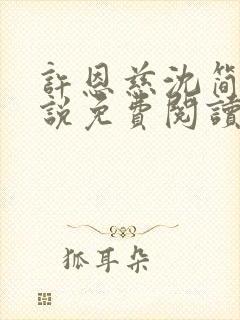 許恩慈沈簡
說免費閱讀
狐耳朵